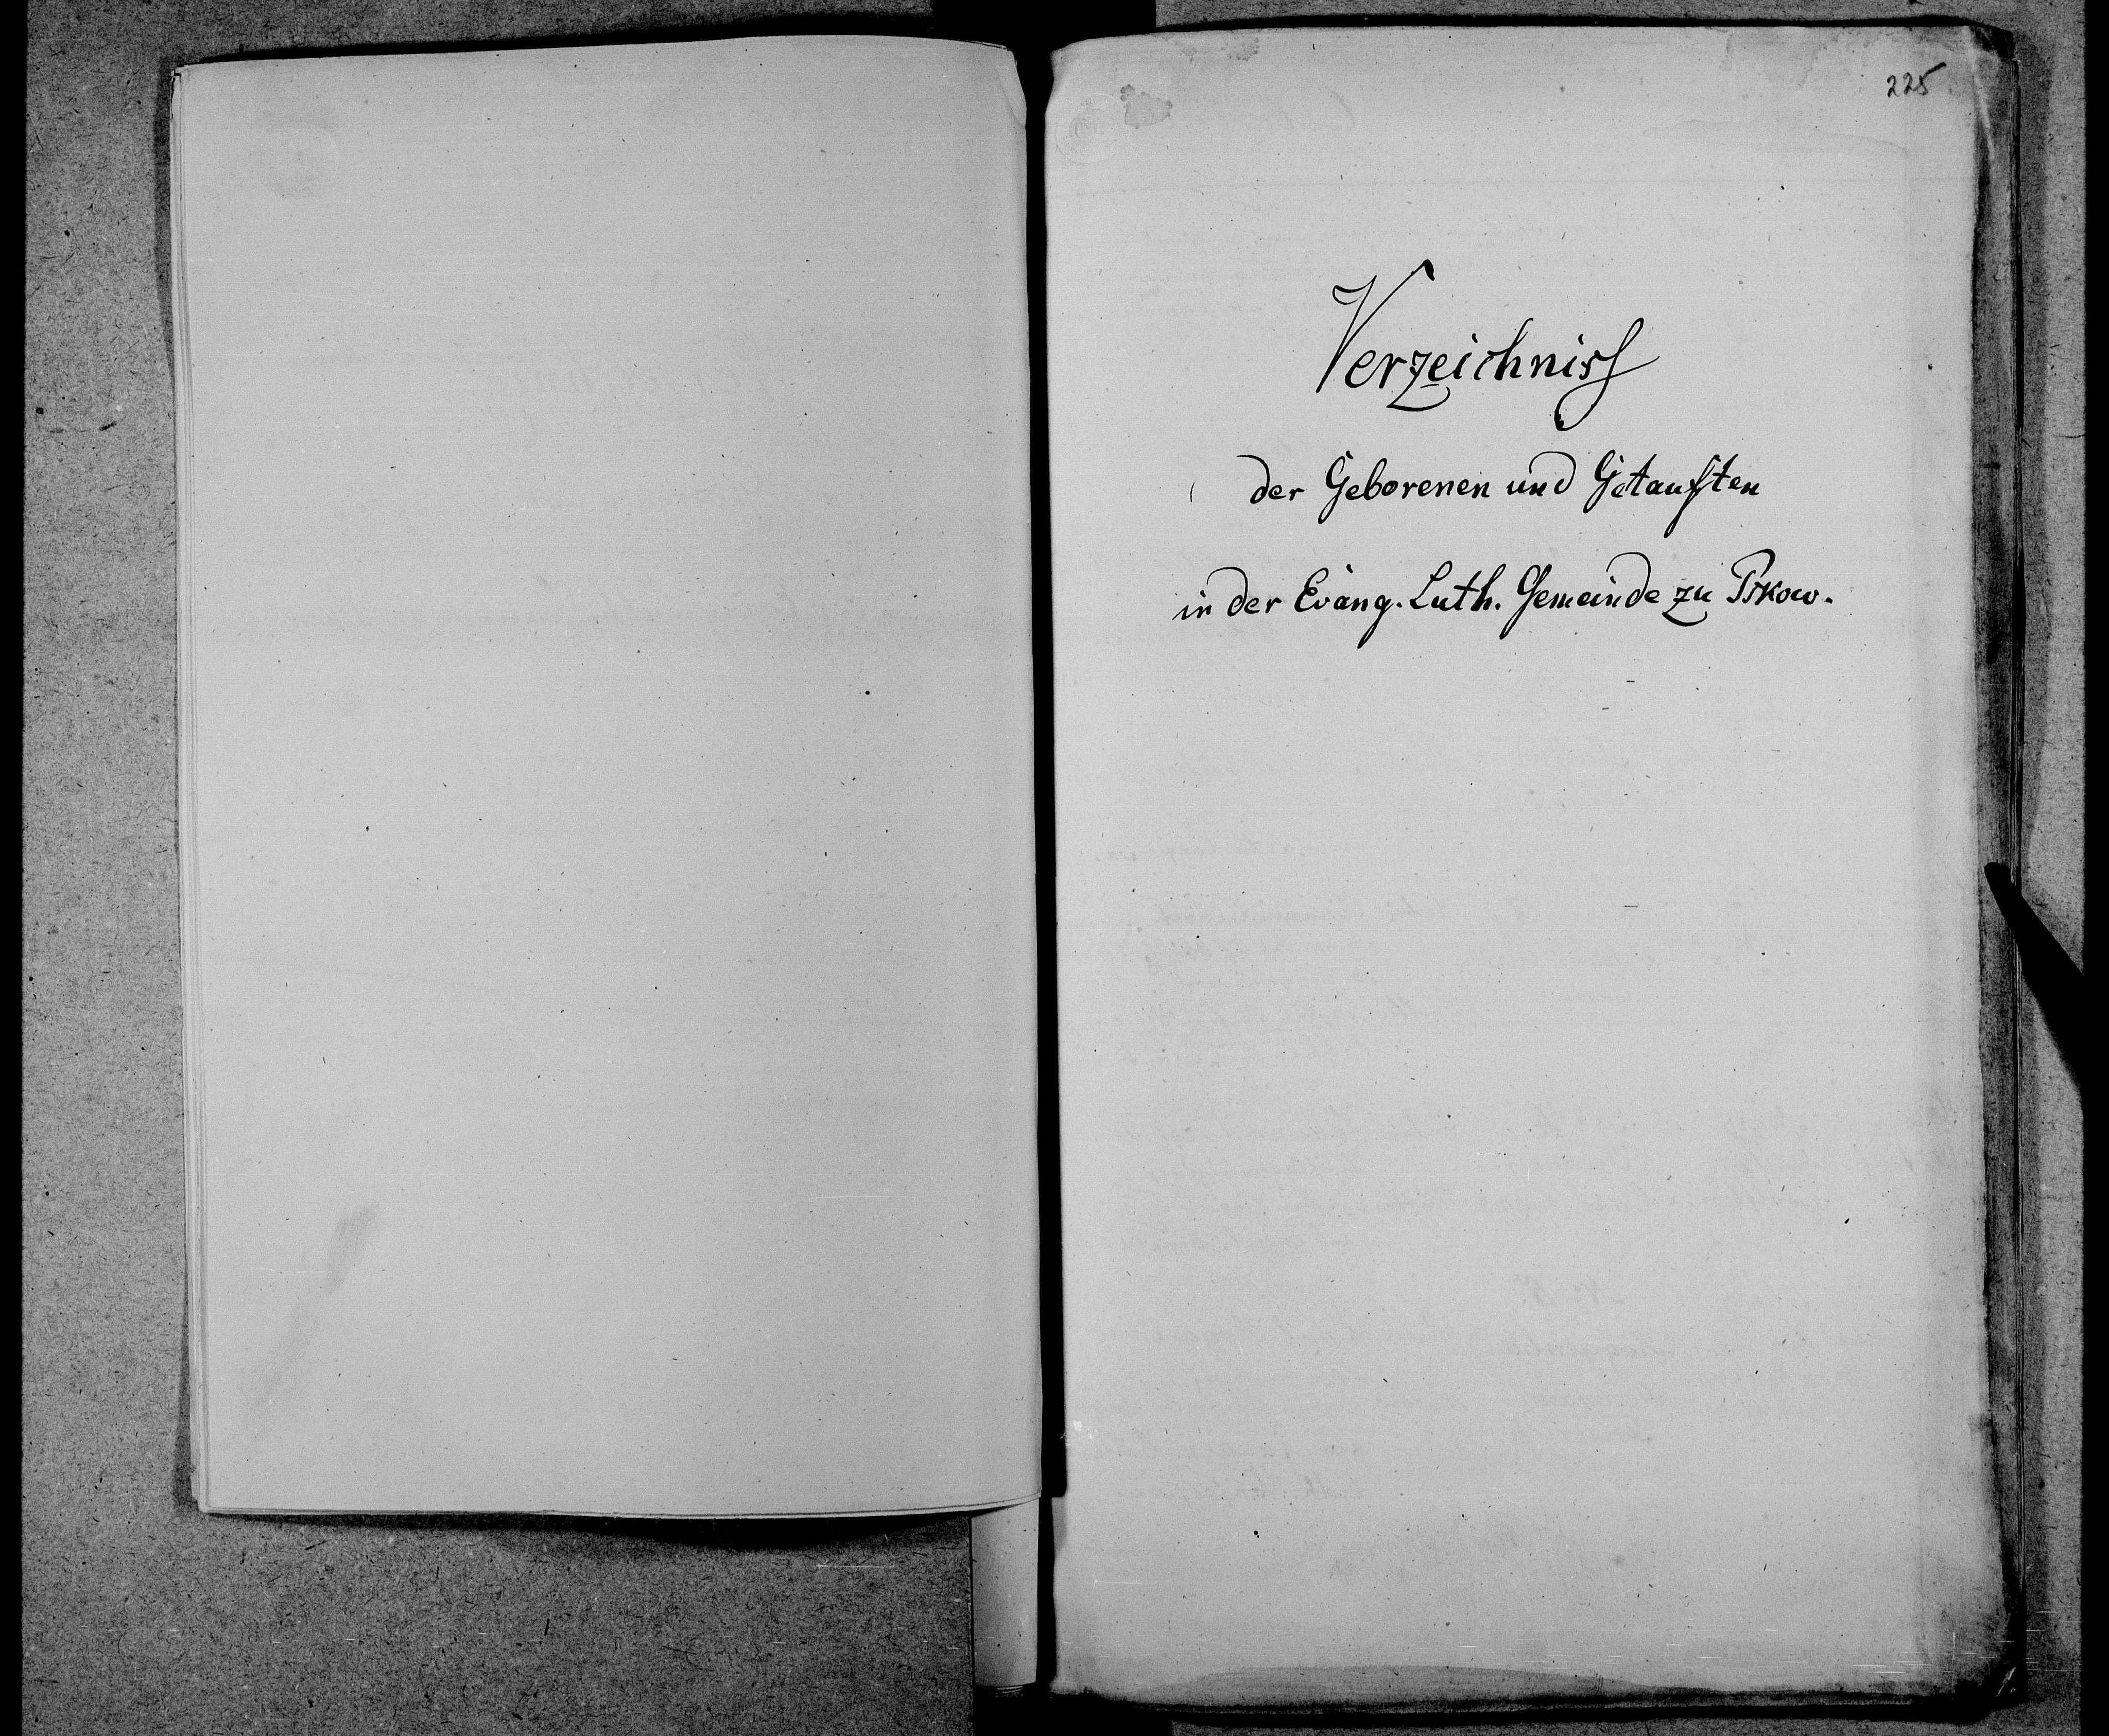 225
Verzeichniss
der Geborenen und Getauften
in der Evang. Luth. Gemeinde zu Pskow.